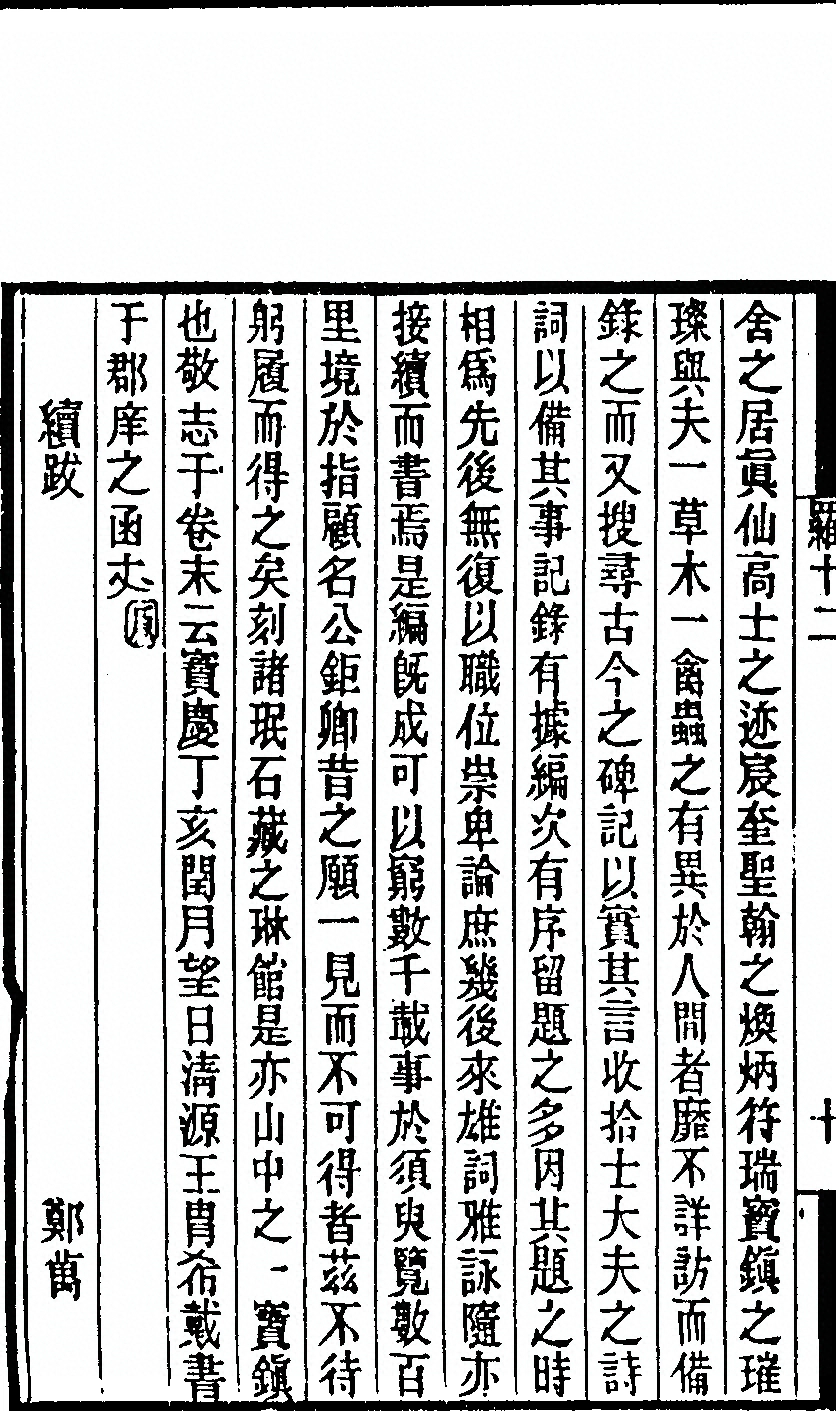 羅十二
十
舍之居眞仙高士之迹宸奎聖翰之煥炳符瑞寶鎭之璀
璨與夫一草木一禽蟲之有異於人間者靡不詳訪而備
錄之而又搜尋古今之碑記以實其言收拾士大夫之詩
詞以備其事記錄有據編次有序留題之多因其題之時
相爲先後無復以職位崇卑論庶幾後來雄詞雅詠隨亦
接續而書焉是編旣成可以窮數千載事於須臾覽數百
里境於指顧名公鉅卿昔之願一見而不可得者茲不待
躬履而得之矣刻諸珉石藏之琳館是亦山中之一寶鎭
也敬志于卷末云寶慶丁亥閏月望日淸源王胄希戴書
于郡庠之函丈
續跋
鄭萬